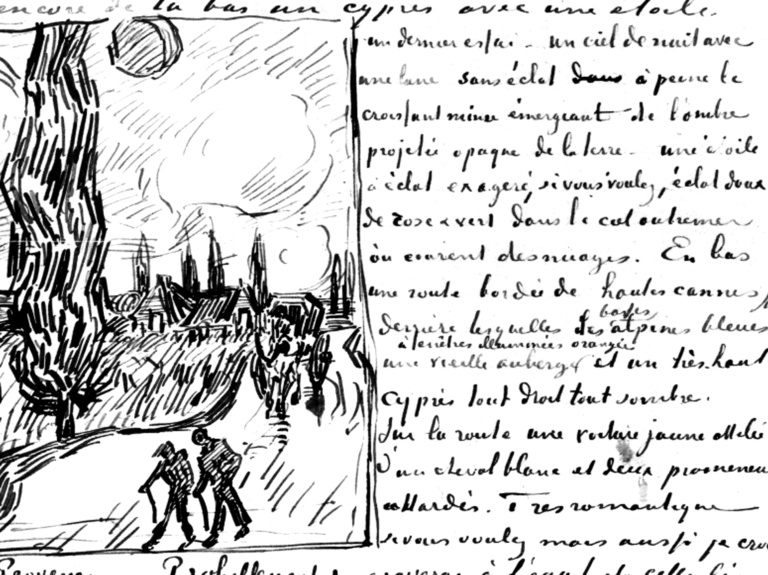 encore de là bas un cyprès avec une étoile.
un dernier essai – un ciel de nuit avec
une lune sans éclat à peine le
croissant mince émergeant de l'ombre
projetée opaque de la terre – une étoile
à éclat exageré, si vous voulez, éclat doux
de rose & vert dans le ciel outremer
où courent des nuages. En bas
une route bordée de hautes cannes
basses
derrière lesquelles les alpines bleues
à fenêtres illuminées orangées
une vieille auberge et un très haut
cyprès tout droit tout sombre.
Sur la route une voiture jaune attelée
d'un cheval blanc et deux promeneurs
attardés. Très romantique
si vous voulez mais aussi je crois
Provence. Probablement à l'eau